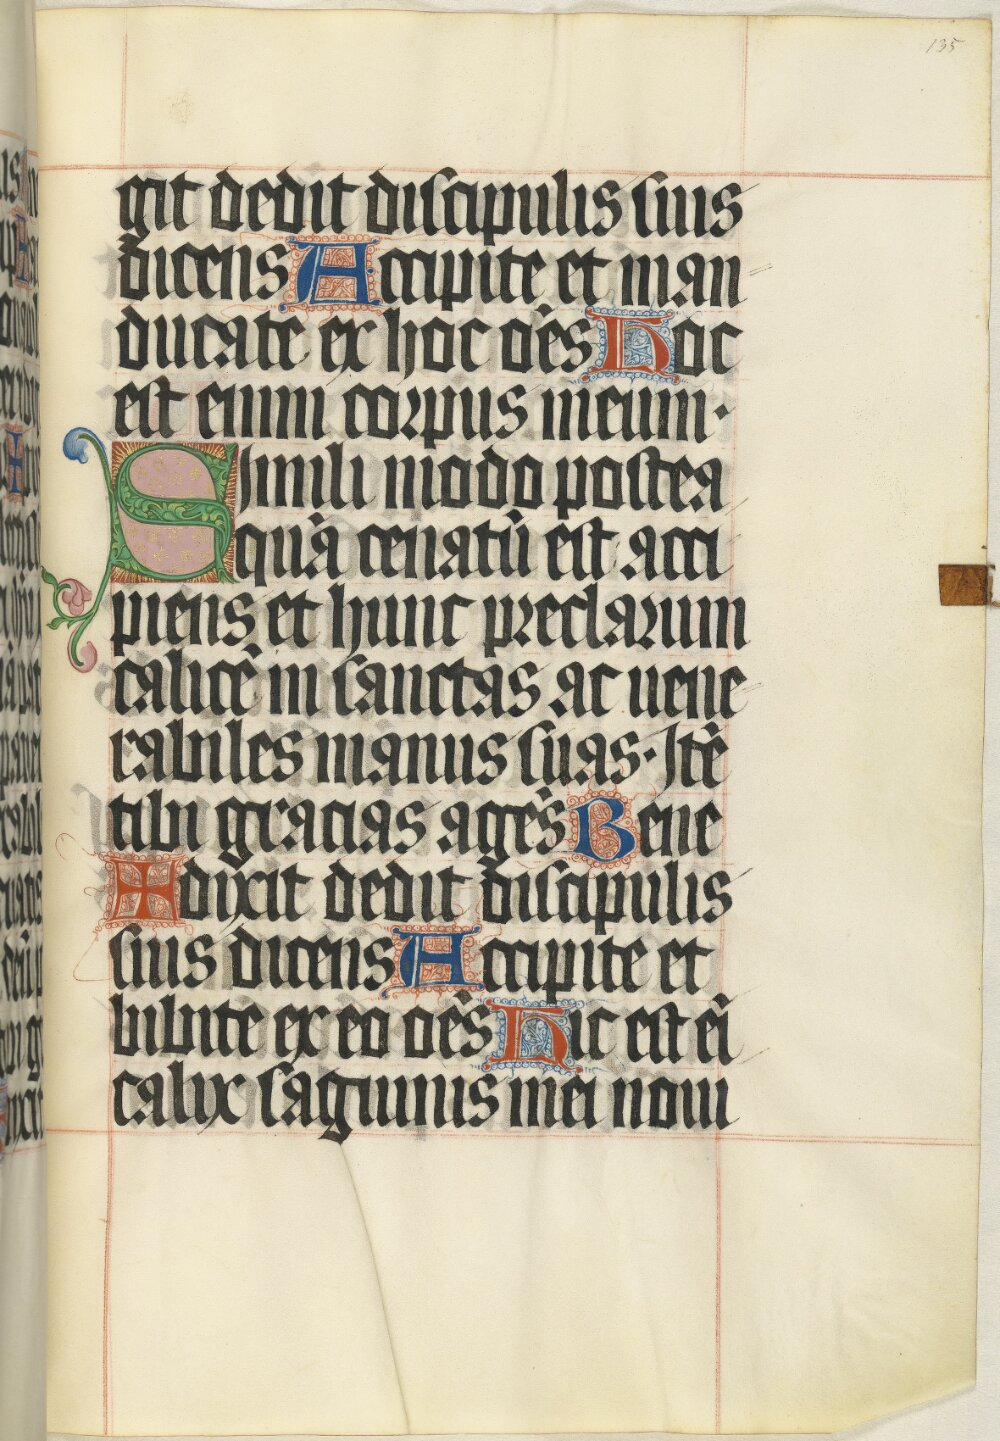 135
git dedit discipulis suis
dicens Accipite et man
ducate ex hoc oēs Hoc
est enim corpus meum·
Simili modo postea
quā cenatū est acci
piens et hunc preclarum
calicē in sanctas ac uene
rabiles manus suas· Itē
tibi gracias agēs Bene
✠ dixit dedit discipulis
suis dicens Accipite et
bibite ex eo oēs Hic est eī
calix sāguinis mei noui